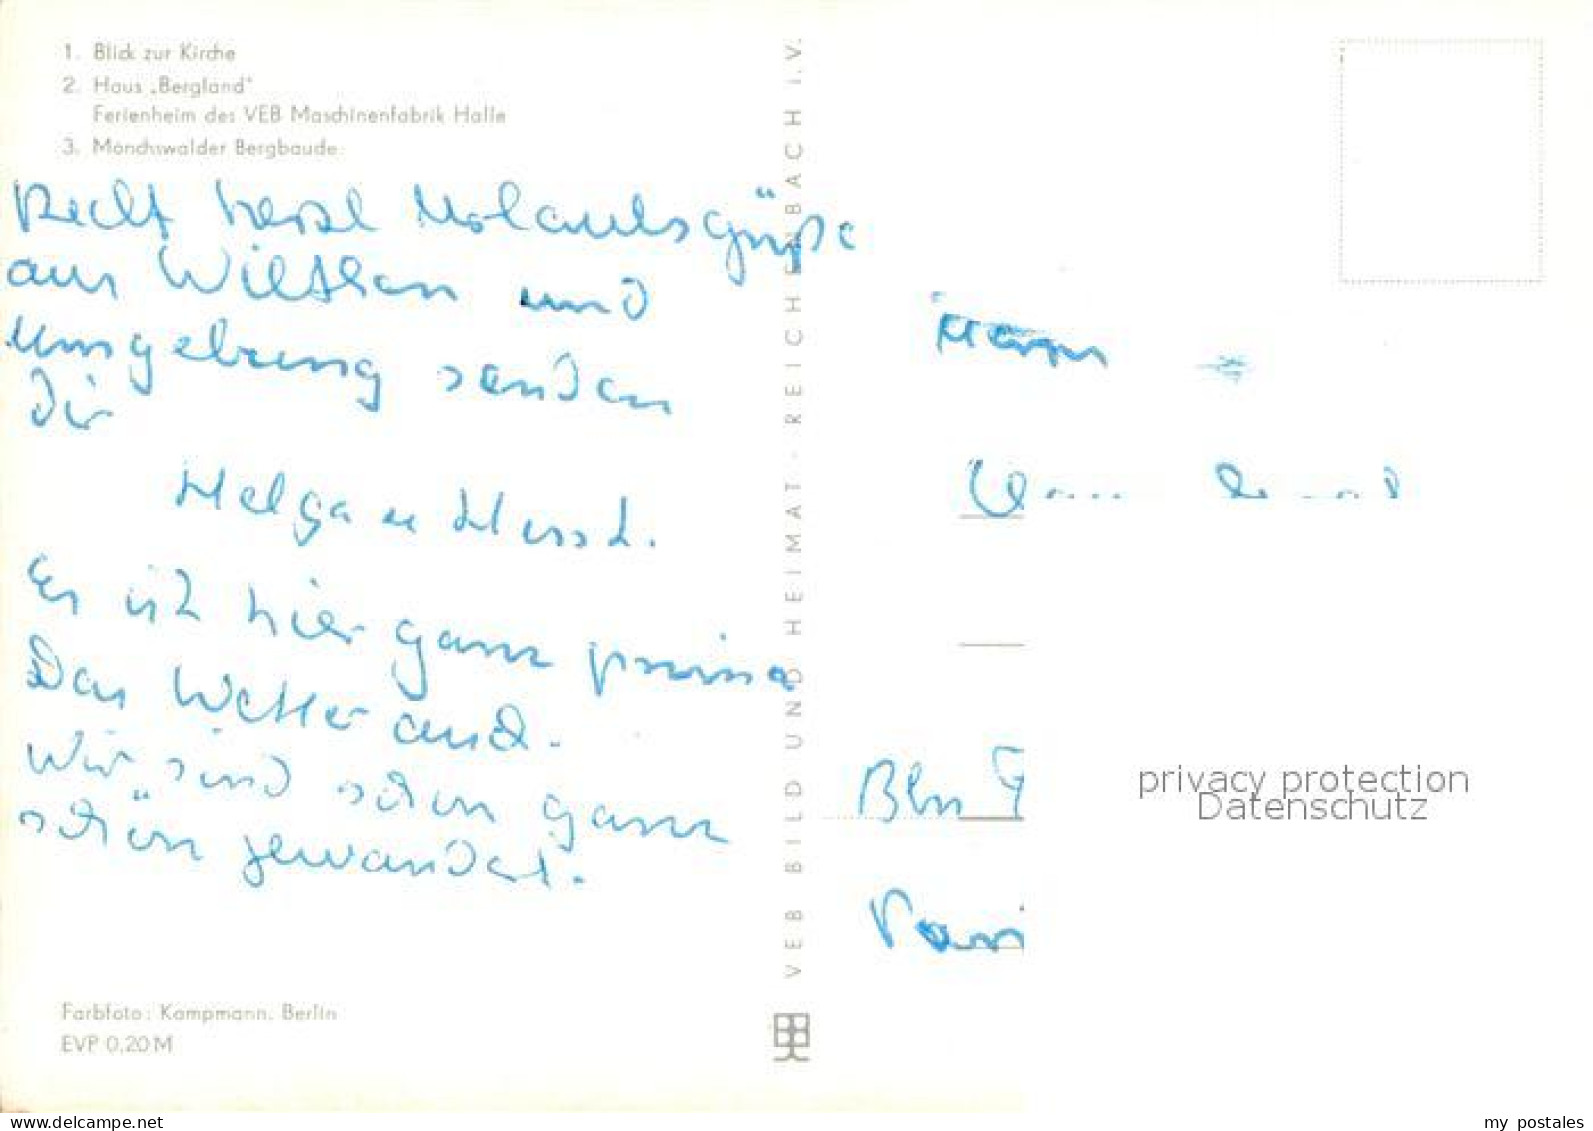 1. Blick zur Kirche
2. Haus „Bergland"
Ferienheim des VEB Maschinenfabrik Halle
3. Mönchswalder Bergbaude
Recht herzl Urlaubsgrüße
aus Wilthen und
Umgebung senden
Dir
Helga u Horst.
Es ist hier ganz prima
Das Wetter auch.
Wir sind schon ganz
schön gewandert.
Farbfoto: Kampmann, Berlin
EVP 0,20 M
VEB BILD UND HEIMAT · REICHENBACH I.V.
Herrn
Bln
privacy protection
Datenschutz
www.delcampe.net
my_postales